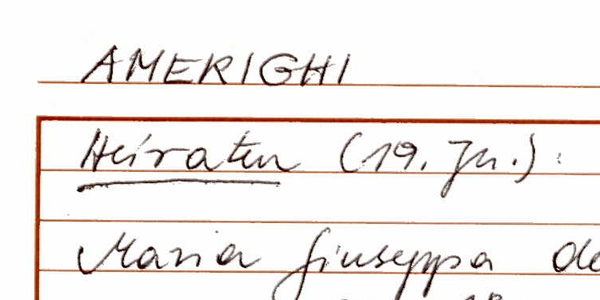 AMERIGHI
Heiraten (19. Jh.):
Maria Giuseppa de